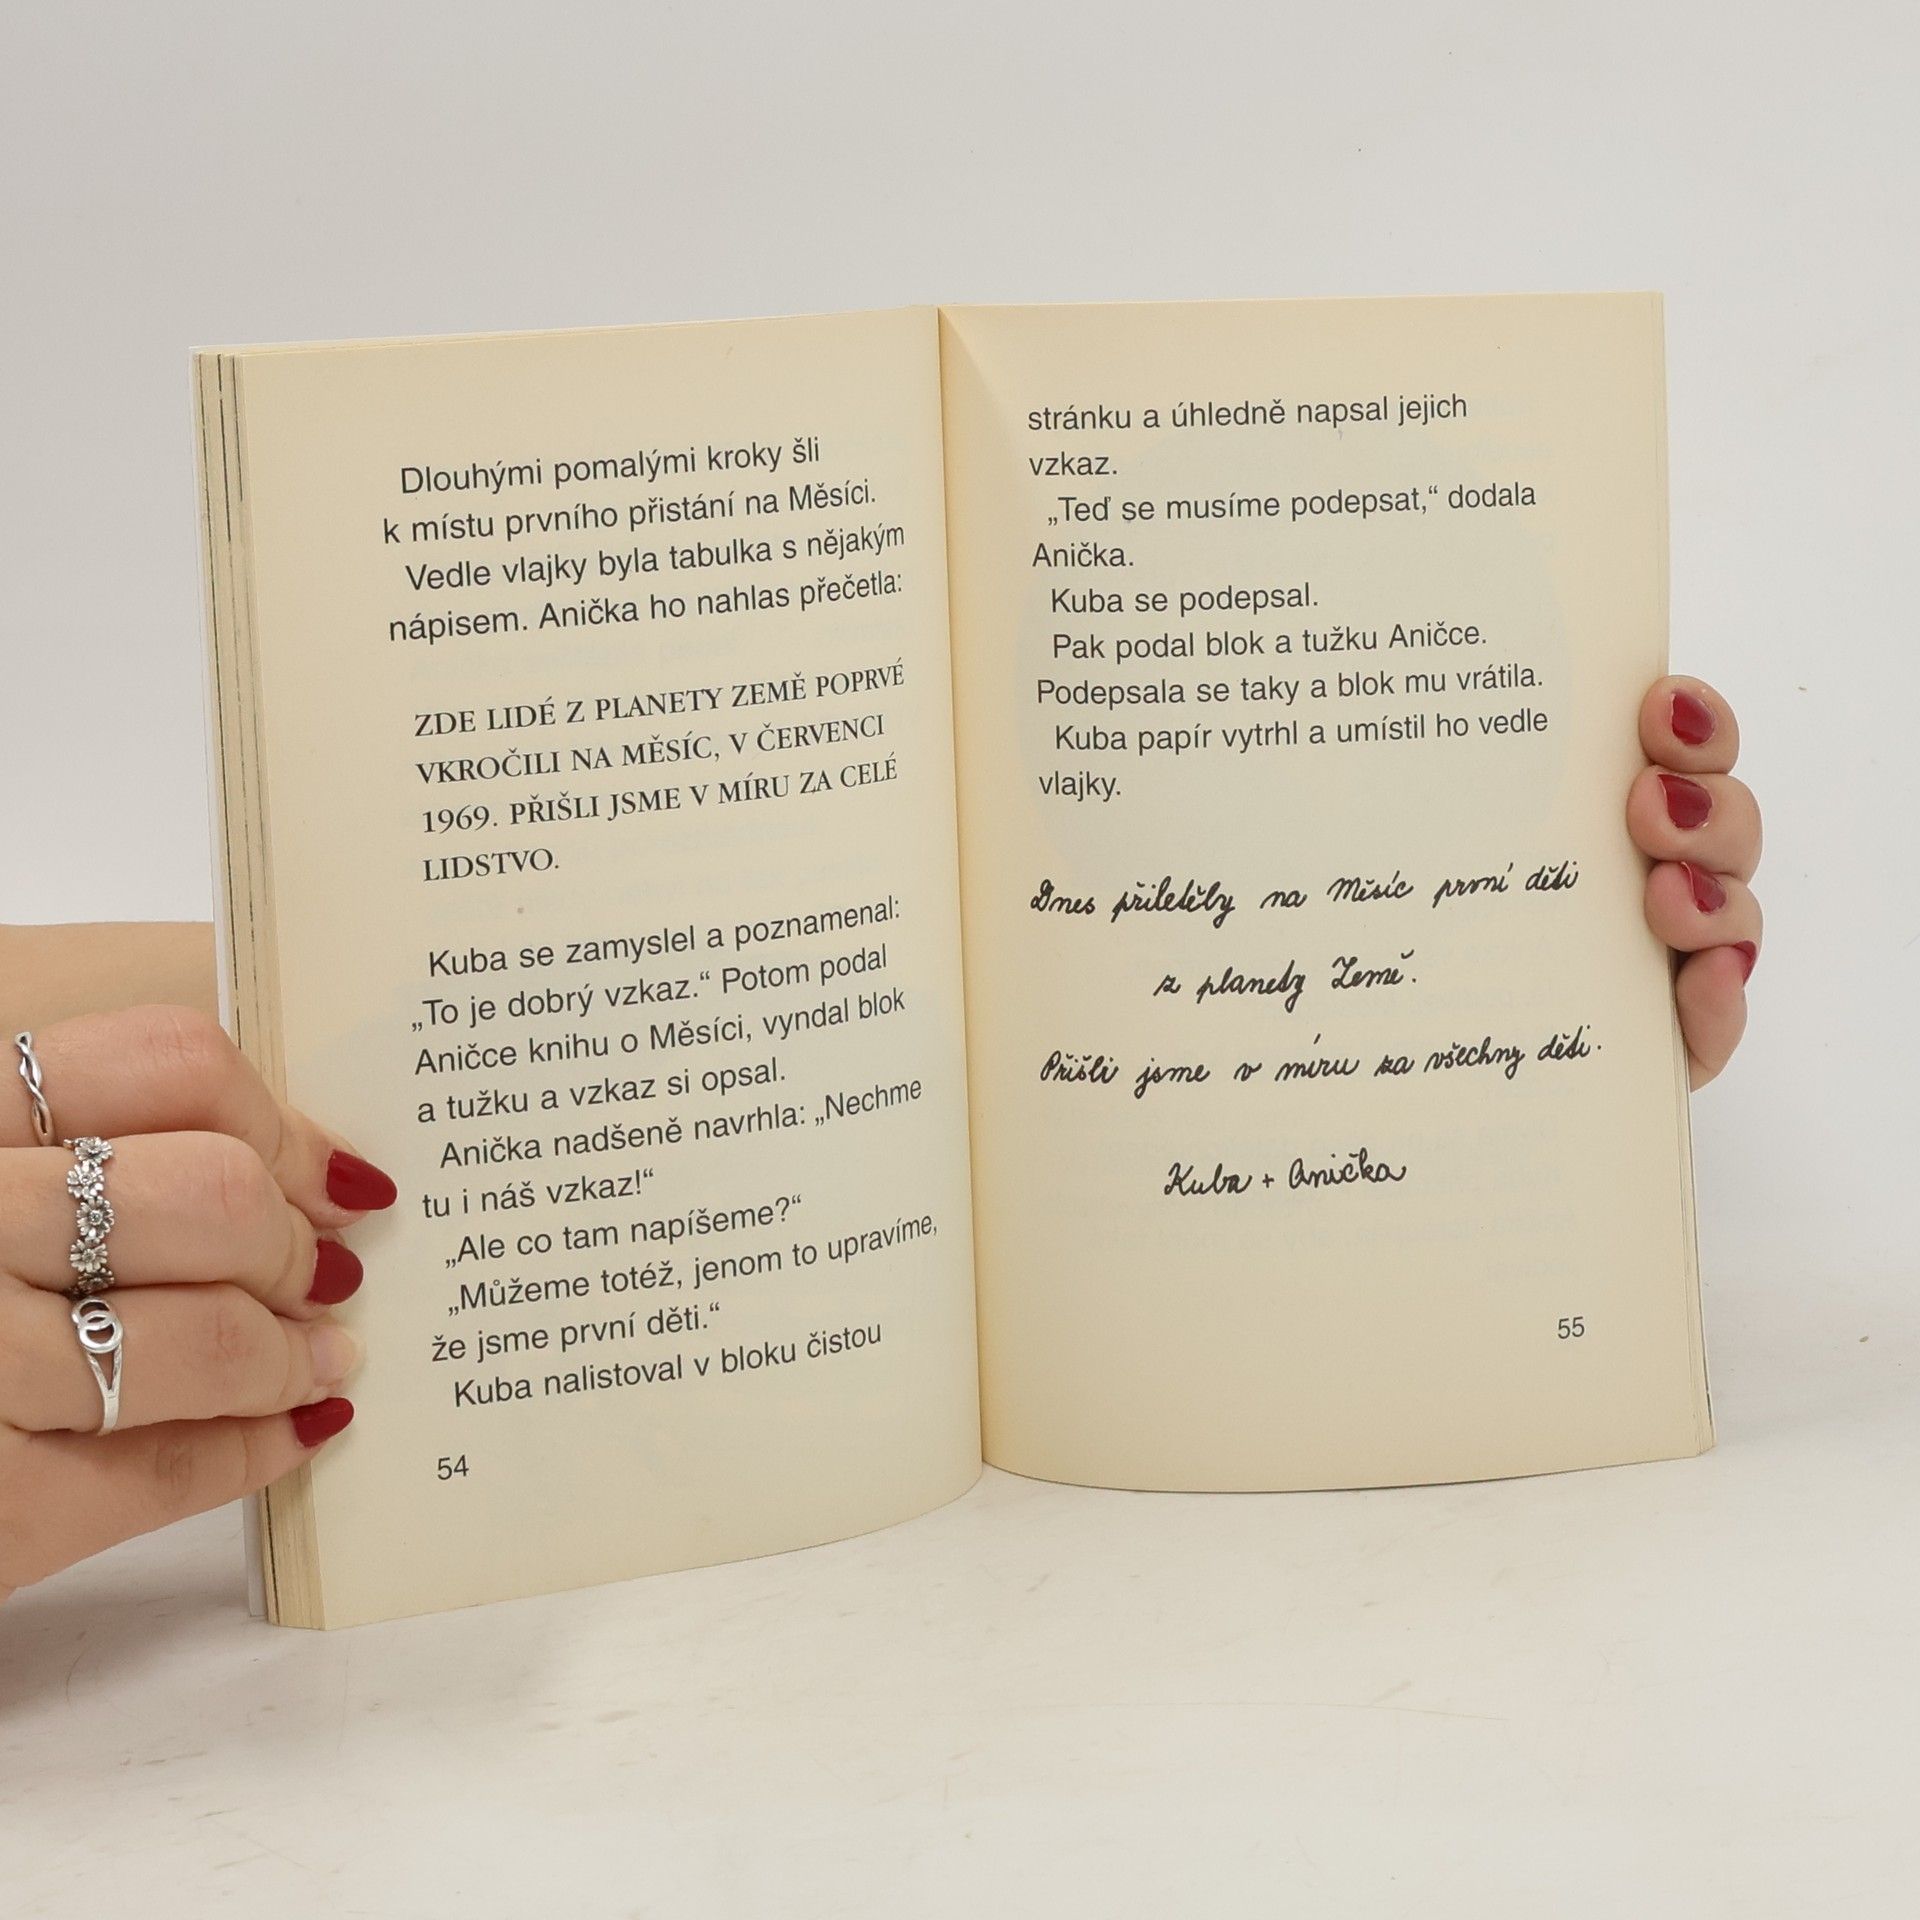 Dlouhými pomalými kroky šli
k místu prvního přistání na Měsíci.
Vedle vlajky byla tabulka s nějakým
nápisem. Anička ho nahlas přečetla:
ZDE LIDÉ Z PLANETY ZEMĚ POPRVÉ
VKROČILI NA MĚSÍC, V ČERVENCI
1969. PŘIŠLI JSME V MÍRU ZA CELÉ
LIDSTVO.
Kuba se zamyslel a poznamenal:
„To je dobrý vzkaz.“ Potom podal
Aničce knihu o Měsíci, vyndal blok
a tužku a vzkaz si opsal.
Anička nadšeně navrhla: „Nechme
tu i náš vzkaz!“
„Ale co tam napíšeme?“
„Můžeme totéž, jenom to upravíme,
že jsme první děti.“
Kuba nalistoval v bloku čistou
54
stránku a úhledně napsal jejich
vzkaz.
„Teď se musíme podepsat,“ dodala
Anička.
Kuba se podepsal.
Pak podal blok a tužku Aničce.
Podepsala se taky a blok mu vrátila.
Kuba papír vytrhl a umístil ho vedle
vlajky.
Dnes přiletěly na Měsíc první děti
z planety Země.
Přišli jsme v míru za všechny děti.
Kuba + Anička
55